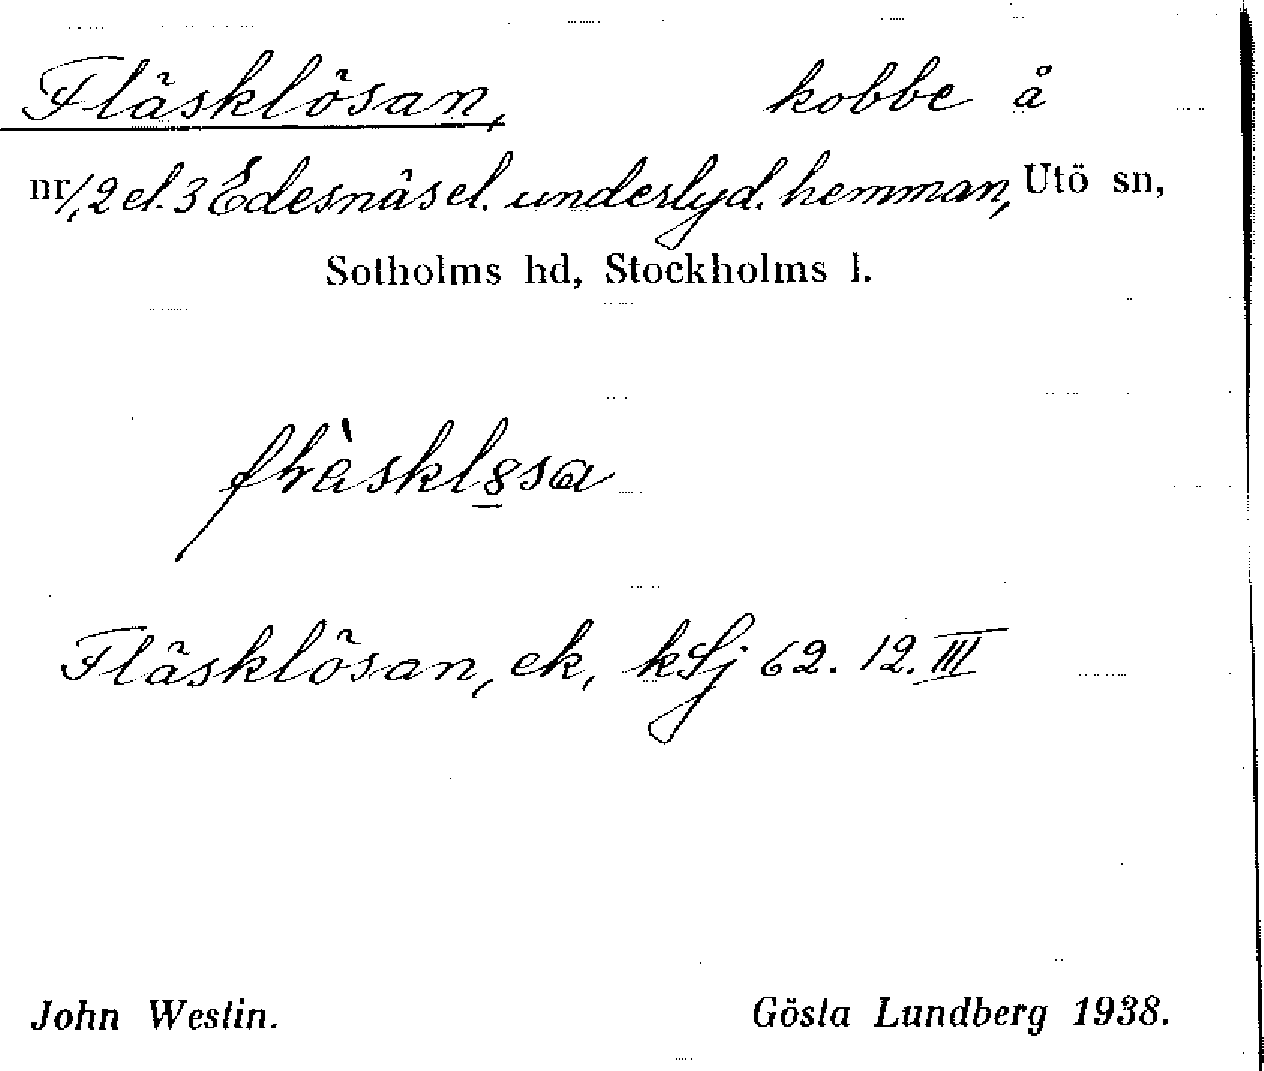 Fläsklösan, kobbe å
nr 1, 2 el. 3 Edesnäs el. underlyd. hemman, Utö sn,
Sotholms hd, Stockholms l.
Fläsklösan, ek, kSj 62. 12. III
John Westin. Gösta Lundberg 1938.